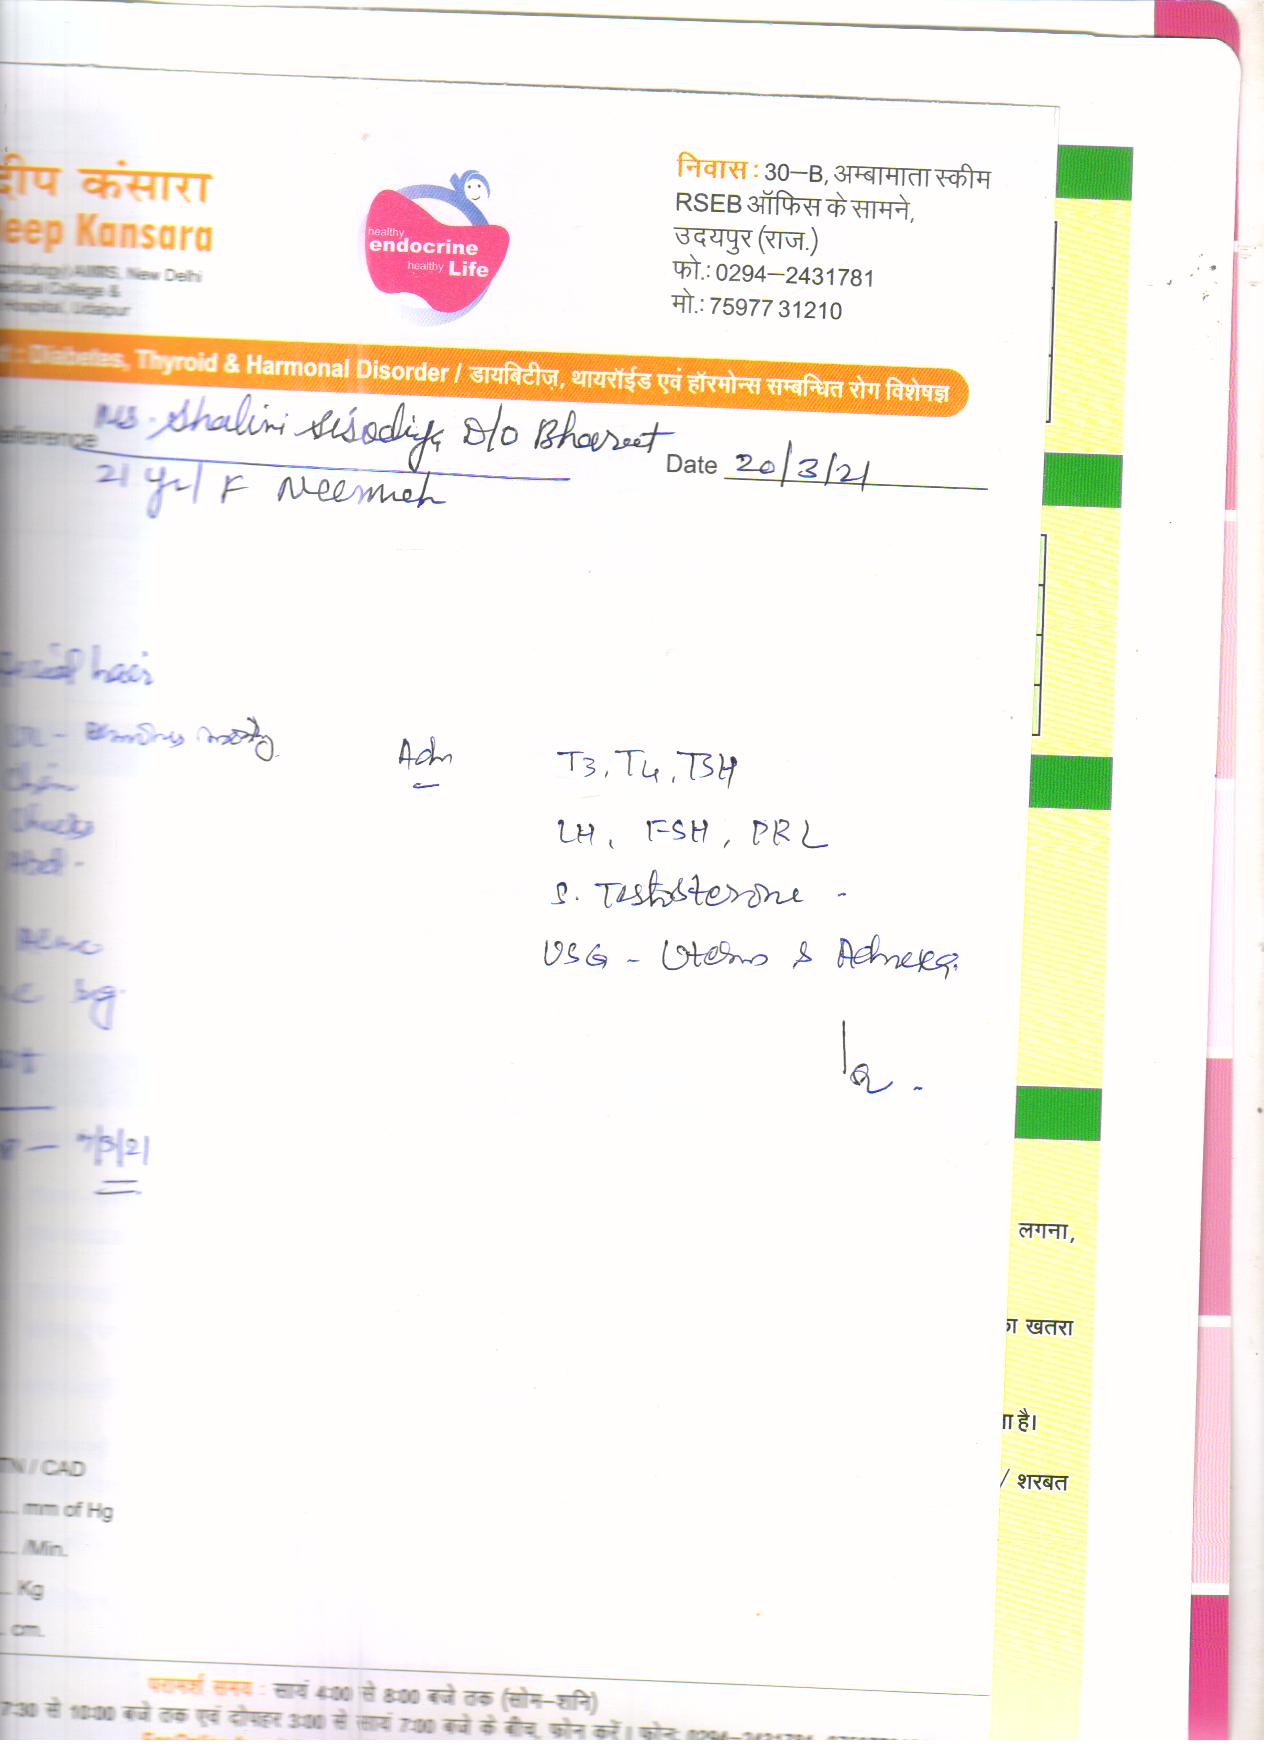 दीप कंसारा
eep Kansara
AIIMS, New Delhi
Medical College &
Hospital, Udaipur
healthy
endocrine
healthy Life
निवास : 30–B, अम्बामाता स्कीम
RSEB ऑफिस के सामने,
उदयपुर (राज.)
फो.: 0294–2431781
मो.: 75977 31210
: Diabetes, Thyroid & Harmonal Disorder / डायबिटीज़, थायरॉईड एवं हॉरमोन्स सम्बन्धित रोग विशेषज्ञ
Reference Ms. Shalini Sisodiya D/O
Date 20/3/21
21 Yr/ F Neemuch
hair
Chin
Abd -
Acne
7/3/21
Adv
T3, T4, TSH
LH, FSH, PRL
S. Testosterone -
USG - Uterus & Adnexa.
लगना,
का खतरा
ा है।
/ शरबत
TN / CAD
... mm of Hg
... /Min.
... Kg
. cm.
परामर्श समय : सायं 4:00 से 8:00 बजे तक (सोम–शनि)
7:30 से 10:00 बजे तक एवं दोपहर 3:00 से सायं 7:00 बजे के बीच, फोन करें। फोन: 0294–2431781,